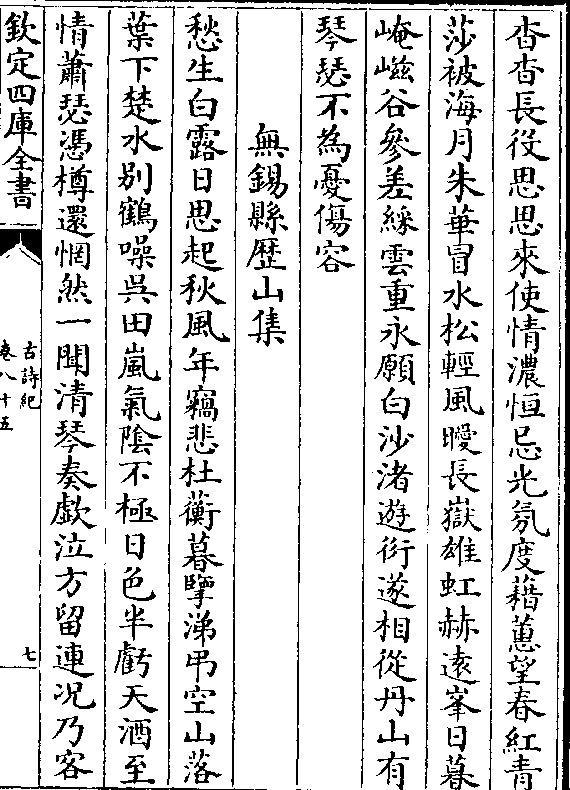 杳杳長役思思來使情濃恒忌光氛度藉蕙望春紅青
莎被海月朱華冒水松輕風曖長嶽雄虹赫遠峯日暮
崦嵫谷參差綵雲重永願白沙渚遊衍遂相從丹山有
琴瑟不為憂傷容
無錫縣歷山集
愁生白露日思起秋風年竊悲杜蘅暮擥涕弔空山落
葉下楚水別鶴噪吳田嵐氣陰不極日色半虧天酒至
情蕭瑟憑樽還惘然一聞清琴奏歔泣方留連况乃客
欽定四庫全書
古詩紀
卷八十五
七